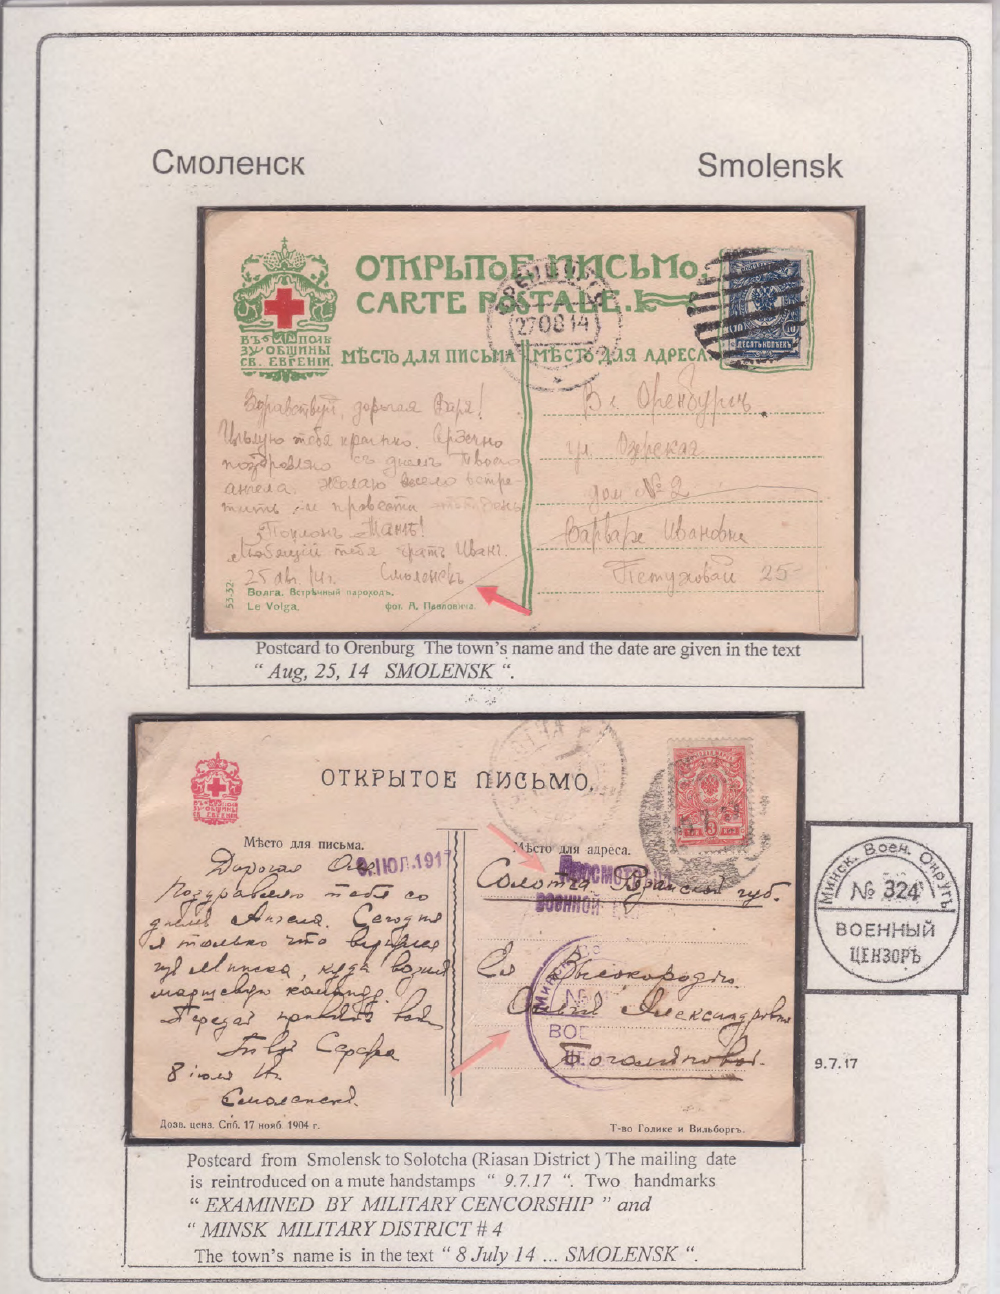 Смоленск
Smolensk
ОТКРЫТОЕ ПИСЬМО.
CARTE POSTALE.
ВЪ ПОЛЬЗУ ОБЩИНЫ
СВ. ЕВГЕНIИ.
МѢСТО ДЛЯ ПИСЬМА
МѢСТО ДЛЯ АДРЕСА.
ОРЕНБУРГЪ
27 08 14
10 10
ДЕСЯТЬ КОПѢЕКЪ
Здравствуй, дорогая Варя!
Цѣлую тебя крѣпко. Сердечно
поздравляю съ днемъ твоего
ангела. Желаю весело встрѣ-
тить и провести
Поклонъ Манѣ!
Любящiй тебя братъ Иванъ.
25 авг. 14 г. Смоленскъ
Въ г. Оренбургъ
ул. Озерская
дом № 2
Варваре Ивановне
Петуховой 25
53-32.
Волга. Встрѣчный пароходъ.
Le Volga.
фот. А. Павловича.
Postcard to Orenburg The town's name and the date are given in the text
“ Aug, 25, 14 SMOLENSK “.
ОТКРЫТОЕ ПИСЬМО.
Мѣсто для письма.
Мѣсто для адреса.
9. ІЮЛ. 1917
Дорогая Оля
Поздравляю тебя со
днемъ Ангела. Сегодня
я только что вернулся
изъ Минска, куда возилъ
маршевую команду.
Передай привѣтъ всем
Твой Сережа
8 iюля 17 г.
Смоленскъ.
ПРОСМОТРѢНО
ВОЕННОЙ
Солотча Рязанской губ.
Ея Высокородiю
Ольгѣ Александровнѣ
Минск
№
ВОЕ
ЦЕ
Дозв. ценз. Спб. 17 нояб. 1904 г.
Т-во Голике и Вильборгъ.
Минск. Воен. Округъ
№ 324
ВОЕННЫЙ
ЦЕНЗОРЪ
9.7.17
Postcard from Smolensk to Solotcha (Riasan District ) The mailing date
is reintroduced on a mute handstamps “ 9.7.17 “. Two handmarks
“ EXAMINED BY MILITARY CENCORSHIP ” and
“ MINSK MILITARY DISTRICT # 4
The town's name is in the text “ 8 July 14 ... SMOLENSK “.